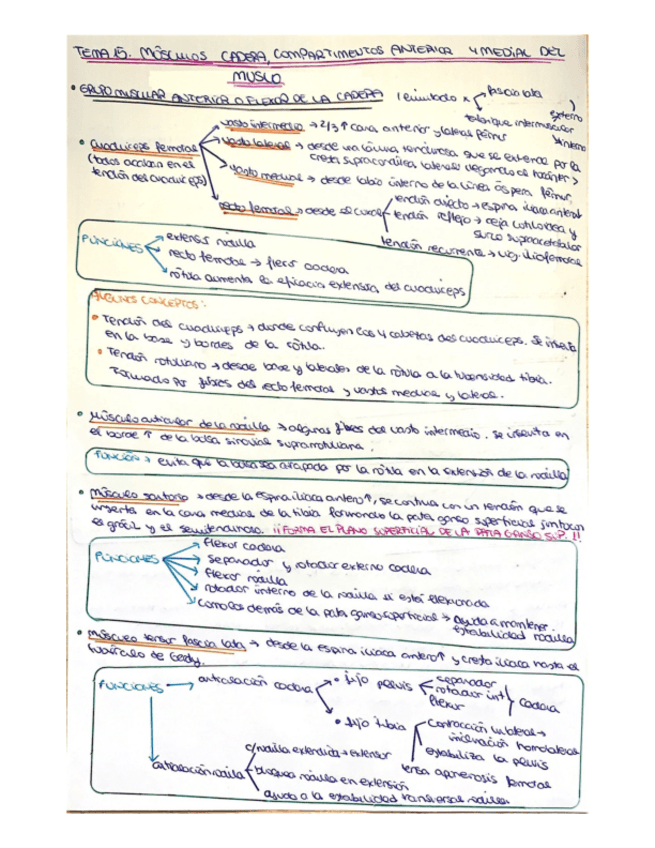 TEMA 15. MÚSCULOS CADERA, COMPARTIMENTOS ANTERIOR Y MEDIAL DEL
MUSLO
• GRUPO MUSCULAR ANTERIOR O FLEXOR DE LA CADERA (limitado x fascia lata
tabique intermuscular externo
interno)
• Cuádriceps femoral
(todos acaban en el
tendón del cuádriceps)
vasto intermedio → 2/3 ↑ cara anterior y lateral fémur
vasto lateral → desde una lámina tendinosa que se extiende por la
cresta supracondílea lateral llegando al trocánter >
vasto medial → desde labio interno de la línea áspera fémur.
recto femoral → desde el coxal
tendón directo → espina ilíaca anteroinf
tendón reflejo → ceja cotiloidea y
surco supraacetabular
tendón recurrente → lig. iliofemoral
FUNCIONES
extensor rodilla
recto femoral → flexor cadera
rótula aumenta la eficacia extensora del cuádriceps
ALGUNOS CONCEPTOS:
• Tendón del cuádriceps → donde confluyen las 4 cabezas del cuádriceps. Se inserta
en la base y bordes de la rótula.
• Tendón rotuliano → desde base y laterales de la rótula a la tuberosidad tibia.
Formado por fibras del recto femoral y vastos medial y lateral.
• Músculo articular de la rodilla → algunas fibras del vasto intermedio. Se inserta en
el borde ↑ de la bolsa sinovial suprarrotuliana.
FUNCIÓN → evita que la bolsa sea atrapada por la rótula en la extensión de la rodilla
• Músculo sartorio → desde la espina ilíaca antero↑, se continua con un tendón que se
inserta en la cara medial de la tibia formando la pata ganso superficial junto con
el grácil y el semitendinoso. ¡¡FORMA EL PLANO SUPERFICIAL DE LA PATA GANSO SUP.!!
FUNCIONES
flexor cadera
separador y rotador externo cadera
flexor rodilla
rotador interno de la rodilla si está flexionada
como los demás de la pata ganso superficial → ayuda a mantener
estabilidad rodilla
• Músculo tensor fascia lata → desde la espina ilíaca antero↑ y cresta ilíaca hasta el
tubérculo de Gerdy.
FUNCIONES → articulación cadera
• fijo pelvis
separador
rotador int
flexor
cadera
• fijo tibia
contracción unilateral →
inclinación homolateral
estabiliza la pelvis
tensa aponeurosis femoral
articulación rodilla
c/rodilla extendida → extensor
bloquea rodilla en extensión
ayuda a la estabilidad transversal rodilla.